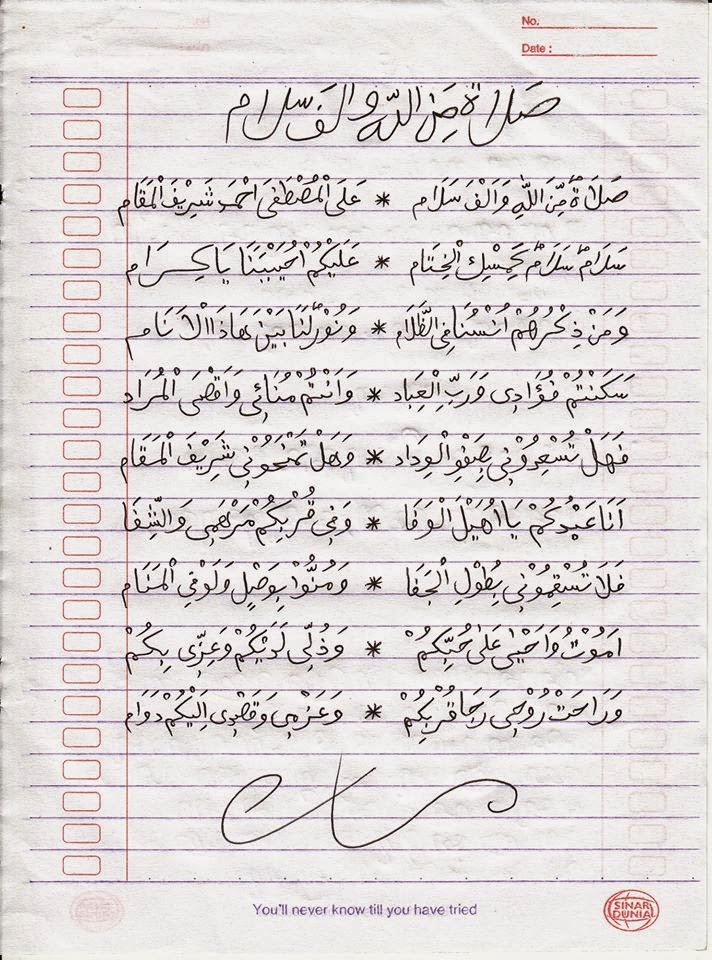 No.
Date :
صلاة من الله والف سلام
صَلَاةٌ مِّنَ اللّٰهِ وَاَلْفَ سَلَام * عَلَى الْمُصْطَفَى اَحْمَدَ شَرِيْفِ الْمَقَام
سَلَامٌ سَلَامٌ كَمِسْكِ الْخِتَام * عَلَيْكُمْ اُحَيْبَنَا يَاكِرَام
وَمَنْ ذِكْرُهُمْ اُنْسُنَا فِى الظَّلَام * وَنُوْرٌ لَنَا بَيْنَ هَاذَا الْاَنَام
سَكَنْتُمْ فُؤَادِى وَرَبِّ الْعِبَاد * وَاَنْتُمْ مُنَائِى وَاَقْصَى الْمُرَاد
فَهَلْ تُسْعِدُوْنِى بِصَفْوِ الْوِدَاد * وَهَلْ تَمْنَحُوْنِى شَرِيْفَ الْمَقَام
اَنَا عَبْدُكُمْ يَا اُهَيْلَ الْوَفَا * وَفِى قُرْبِكُمْ مَرْهَمِى وَالشِّفَا
فَلَا تُسْقِمُوْنِى بِطُوْلِ الْجَفَا * وَمُنُّوْا بِوَصْلٍ وَلَوْ فِى الْمَنَام
اَمُوْتُ وَاَحْيٰى عَلٰى حُبِّكُمْ * وَذُلِّى لَدَيْكُمْ وَعِزِّى بِكُمْ
وَرَاحَتْ رُوْحِى رَجَا قُرْبِكُمْ * وَعَزْمِى وَقَصْدِى اِلَيْكُمْ دَوَام
You'll never know till you have tried
SINAR DUNIA